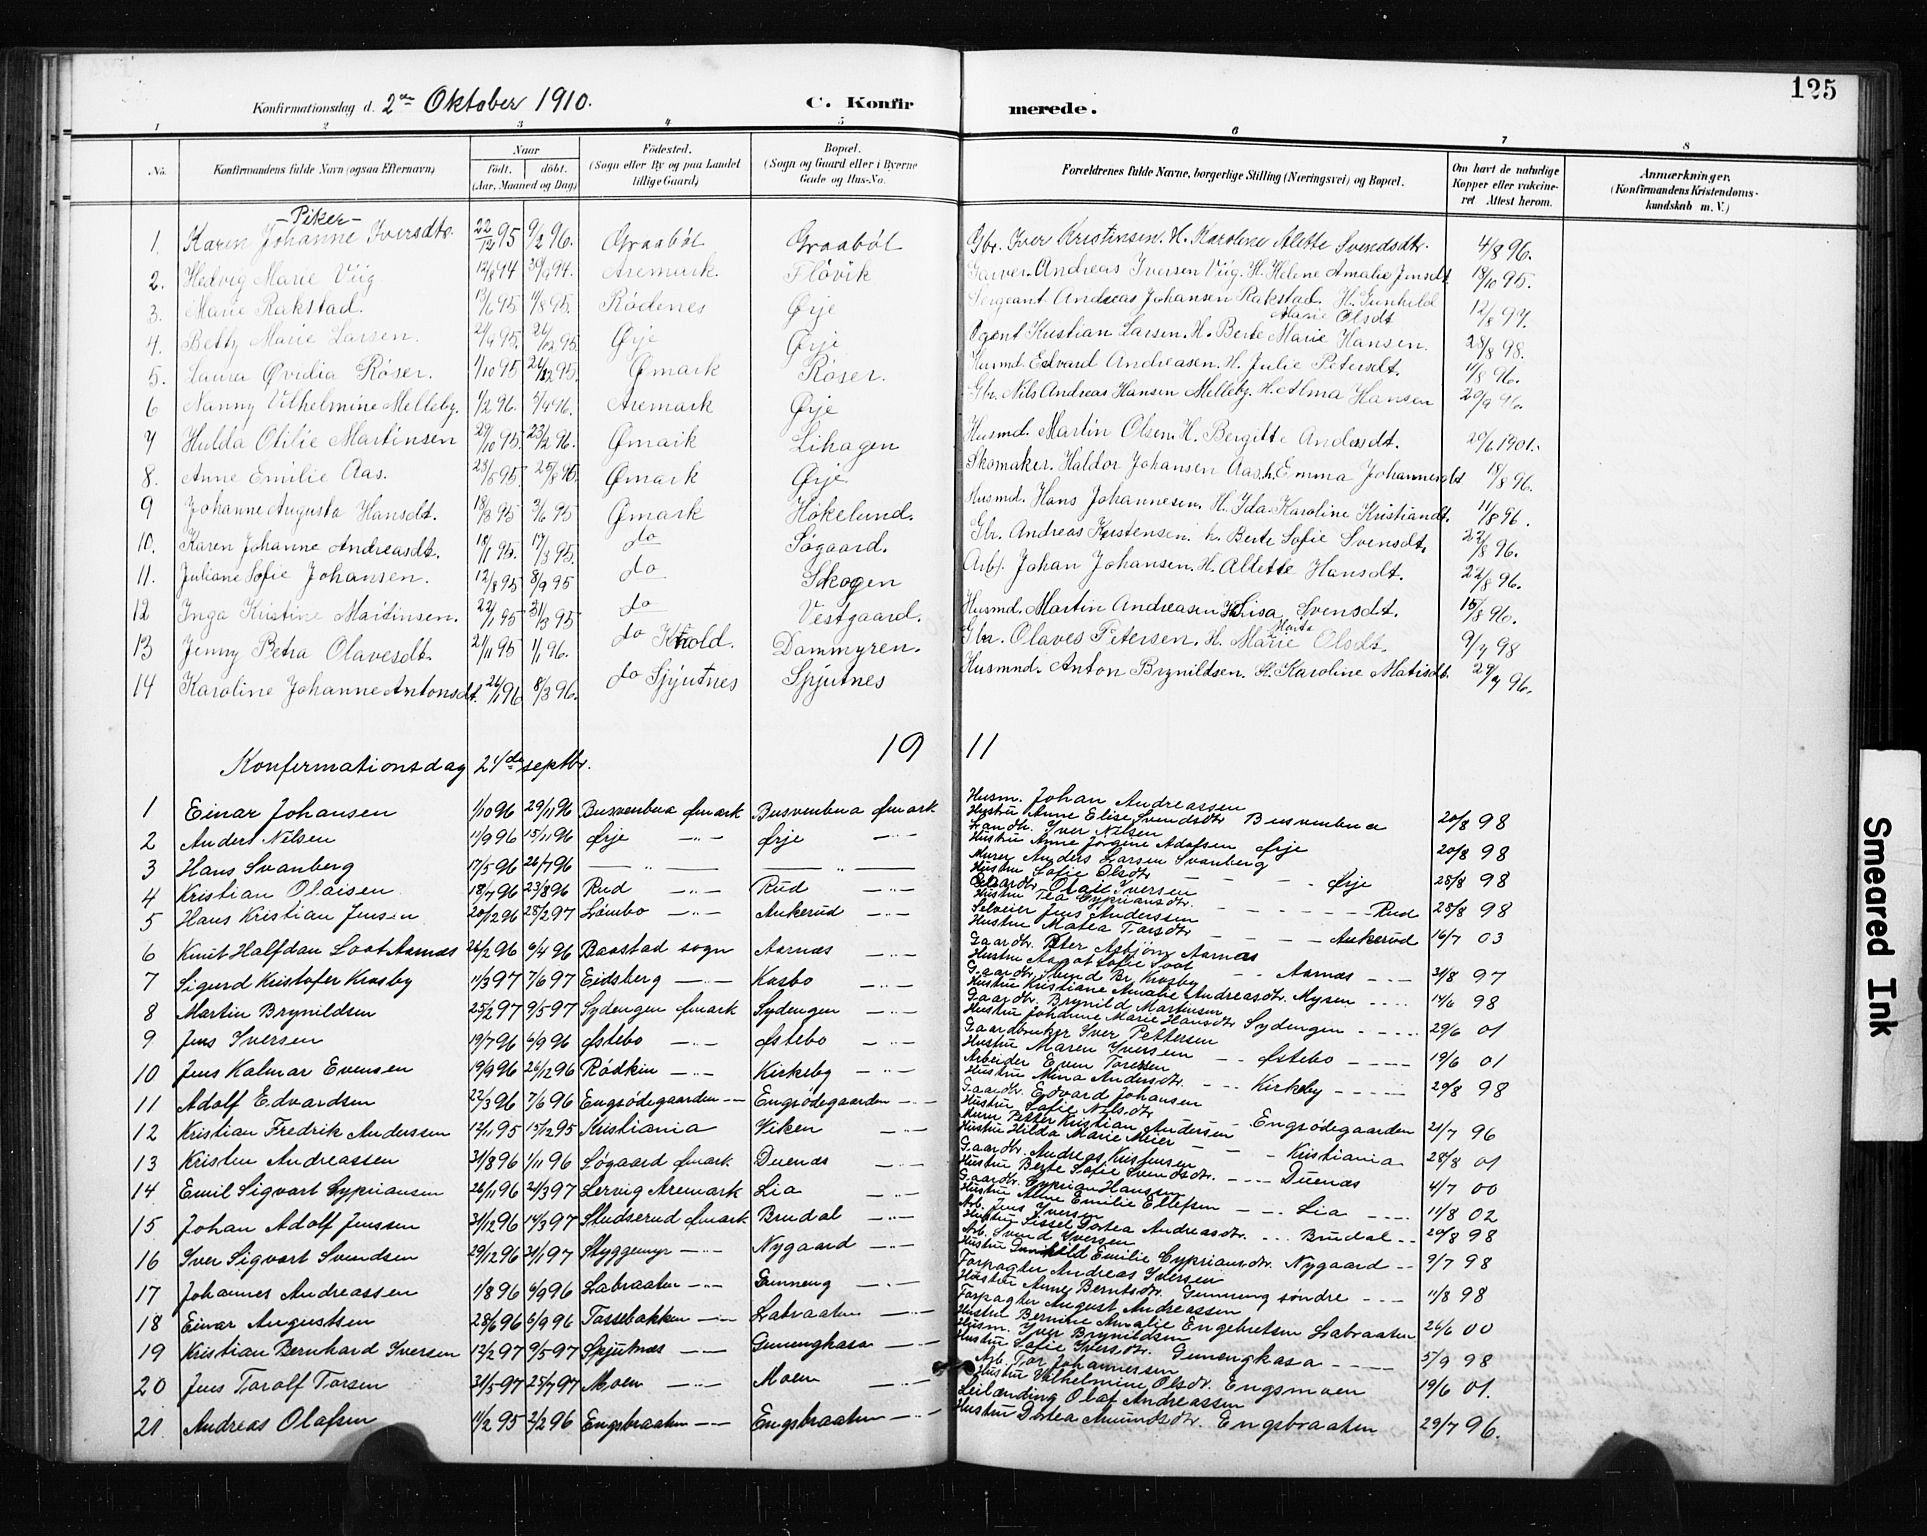 125
Konfirmationsdag d. 2den Oktober 1910. C. Konfirmerede.
1 2 3 4 5 6 7 8
No. Konfirmandens fulde Navn (ogsaa Efternavn) Naar født. døbt. (Aar, Maaned og Dag) Fødested. (Sogn eller By og paa Landet tillige Gaard) Bopæl. (Sogn og Gaard eller i Byerne Gade og Hus-No. Forældrenes fulde Navne, borgerlige Stilling (Næringsvei) og Bopæl. Om havt de naturlige Kopper eller vakcineret Attest herom. Anmærkninger. (Konfirmandens Kristendomskundskab m. V.)
- Piker -
1. Karen Johanne Iversdtr. 22/12 95 9/2 96. Graabøl Graabøl Gbr. Iver Kristinsen. H. Karoline Alette Svendsdtr. 4/8 96.
2. Hedvig Marie Viig 12/8 94 30/9 94. Aremark. Fløvik Garver. Andreas Iversen Viig. H. Helene Amalie Jensdt. 18/10 95.
3. Marie Rakstad. 17/6 95 4/8 95. Rødenes Ørje Sergeant Andreas Johansen Rakstad. H. Gunhild Marie Olsdt 12/8 97.
4. Betty Marie Larsen. 21/9 95. 26/12 95 Ørje Ørje Agent Kristian Larsen. H. Berte Marie Hansen. 28/8 98.
5. Laura Øvidia Røser. 4/10 95 26/12 95. Ømark Røser. Husmd. Edvard Andreasen. H. Julie Petersdt. 11/8 96.
6 Nanny Vilhelmine Melleby. 1/2 96. 5/4 96. Aremark Ørje Gbr. Nils Andreas Hansen Melleby. H. Alma Hansen 20/9 96.
7 Hulda Otilie Martinsen 29/10 95. 23/2 96. Ømark Lihagen Husmd. Martin Olsen. H. Bergitte Andersdt. 20/6 1901.
8. Anne Emilie Aas. 23/6 95. 25/8 95. Ømark Ørje Skomaker. Haldor Johansen Aas. h. Emma Johannesdt 18/8 96.
9 Johanne Augusta Hansdt. 18/3 95 3/6 95 Ømark Høkelund. Husmd. Hans Johannesen. H. Ida Karoline Kristiandt. 11/8 96.
10. Karen Johanne Andreasdt. 18/1 95. 17/3 95. do Søgaard. Gbr. Andreas Kristensen. h. Berte Sofie Svensdt. 22/8 96.
11. Juliane Sofie Johansen. 12/8 95 8/9 95 do Skogen Arb. Johan Johansen. H. Allette Hansdt. 22/8 96.
12 Inga Kristine Martinsen. 22/1 95 31/3 95 do Vestgaard. Husmd. Martin Andreasen H. Lisa Svensdt. 15/8 96.
13 Jenny Petra Olavesdt. 21/11 95 1/1 96. do Krold. Dammyren. Gbr. Olaves Petersen. H. Marie Marta Olsdt. 9/7 98
14 Karoline Johanne Antonsdt. 26/1 96 8/3 96. do Spjutnes Spjutnes Husmnd. Anton Brynildsen. H. Karoline Matisdt. 29/7 96.
1911
Konfermationsdag 24de septbr.
1 Einar Johansen 1/10 96 29/11 96 Busvenbua Ømark Busvenbua Ømark Husm. Johan Andreassen Hustru Anne Elise Svendsdtr Busvenbua 20/8 98
2 Anders Nilsen 11/9 96 15/11 96 Ørje —"— Ørje —"— Landh. Iver Nilsen Hustru Anne Jørgine Adafsen Ørje 20/8 98
3 Hans Svanberg 17/5 96 26/7 96 — " — — " — Murer Anders Larsen Svanberg Hustru Sofie Olsdtr Ørje 28/8 98
4 Kristian Olaisen 18/7 96 23/8 96 Rud —"— Rud —"— Gaardbr Olaie Iversen Hustru Tea Cypriansdtr. Rud 28/8 98
5 Hans Kristian Jensen 20/2 96 28/2 97 Lømbo —"— Ankerud —"— Selveier Jens Anderssen Hustru Matea Torsdtr Ankerud 16/7 03
6 Knut Halfdan Loot Aarnæs 26/2 96 6/4 96 Baastad sogn Aarnæs —"— Gaardbr. Peter Asbjørn Aarnæs Hustru Sofie Loot Aarnæs 31/8 97
7 Sigurd Kristofer Krosby 11/3 97 7/6 97 Eidsberg —"— Kasbo —"— Gaardbr. Svend Br. Krosby Hustru Kristiane Amalie Andreasdtr. Mysen 14/6 98
8 Martin Brynildsen 25/2 97 9/5 97 Sydengen Ømark Sydengen —"— Gaardbr. Brynild Martinsen Hustru Johanne Marie Hansdtr Sydengen 29/6 01
9 Jens Iversen 19/7 96 6/9 96 Østebo —"— Østebo —"— Gaardbruker Iver Pettersen Hustru Maren Iversen Østebo 19/6 01
10 Jens Kalmar Evensen 19/9 96 26/12 96 Rødkin —"— Kirkeby —"— Arbeider Even Toresen Hustru Mina Andersdtr. Kirkeby 20/8 98
11 Adolf Edvardsen 22/3 96 7/6 96 Engsødegaarden —"— Engsødegaarden —"— Gaardbr. Edvard Johansen Hustru Sofie Nilsdtr Engsødegaarden 21/7 96
12 Kristian Fredrik Anderssen 12/11 95 15/12 95 Kristiania Viken —"— Murer Petter Kristian Andersen Hustru Hilda Marie Meier Kristiania 28/8 01
13 Kristen Andreassen 31/8 96 1/11 96 Søgaard Ømark Duenæs —"— Gaardbr. Andreas Kristensen Hustru Berte Sofie Svendsdtr. Duenæs 4/7 00
14 Emil Sigvart Cypriansen 26/11 96 21/3 97 Lervig Aremark Lia —"— Gaardbr. Cyprian Hansen Hustru Anne Emilie Ellefsen Lia 11/8 02
15 Johan Adolf Jenssen 31/12 96 14/3 97 Studserud Ømark Brudal —"— Arb. Jens Iversen Hustru Sissel Dortea Andreasdtr. Brudal 20/8 98
16 Iver Sigvart Svendsen 29/12 96 31/1 97 Styggemyr —"— Nygaard —"— Arb. Svend Iversen Hustru Gunhild Emilie Cypriansdtr. Nygaard 9/7 98
17 Johannes Andreassen 1/8 96 6/9 96 Labraaten —"— Gunneng —"— Forpagter Andreas Iversen Hustru Anne Berntsdtr. Gunneng søndre 11/8 98
18 Einar Augustsen 28/6 96 6/9 96 Tassebakken —"— Labraaten —"— Forpagter August Andreassen Hustru Bernine Amalie Engebretsen Labraaten 26/6 00
19 Kristian Bernhard Iversen 13/2 97 9/5 97 Spjutnæs —"— Gunengkasa —"— Husm. Iver Brynildsen Hustru Sofie Iversdtr. Gunengkasa 5/9 98
20 Jens Torolf Torsen 31/5 97 25/7 97 Moen —"— Moen —"— Arb. Tor Johannessen Hustru Vilhelmine Olsdtr. Engsmoen 19/6 01.
21 Andreas Olafsen 11/2 95 2/2 96 Engsbraaten —"— Engsbraaten —"— Leilænding Olaf Andreassen Hustru Dortea Amundsdtr. Engsbraaten 29/7 96.
Smeared Ink